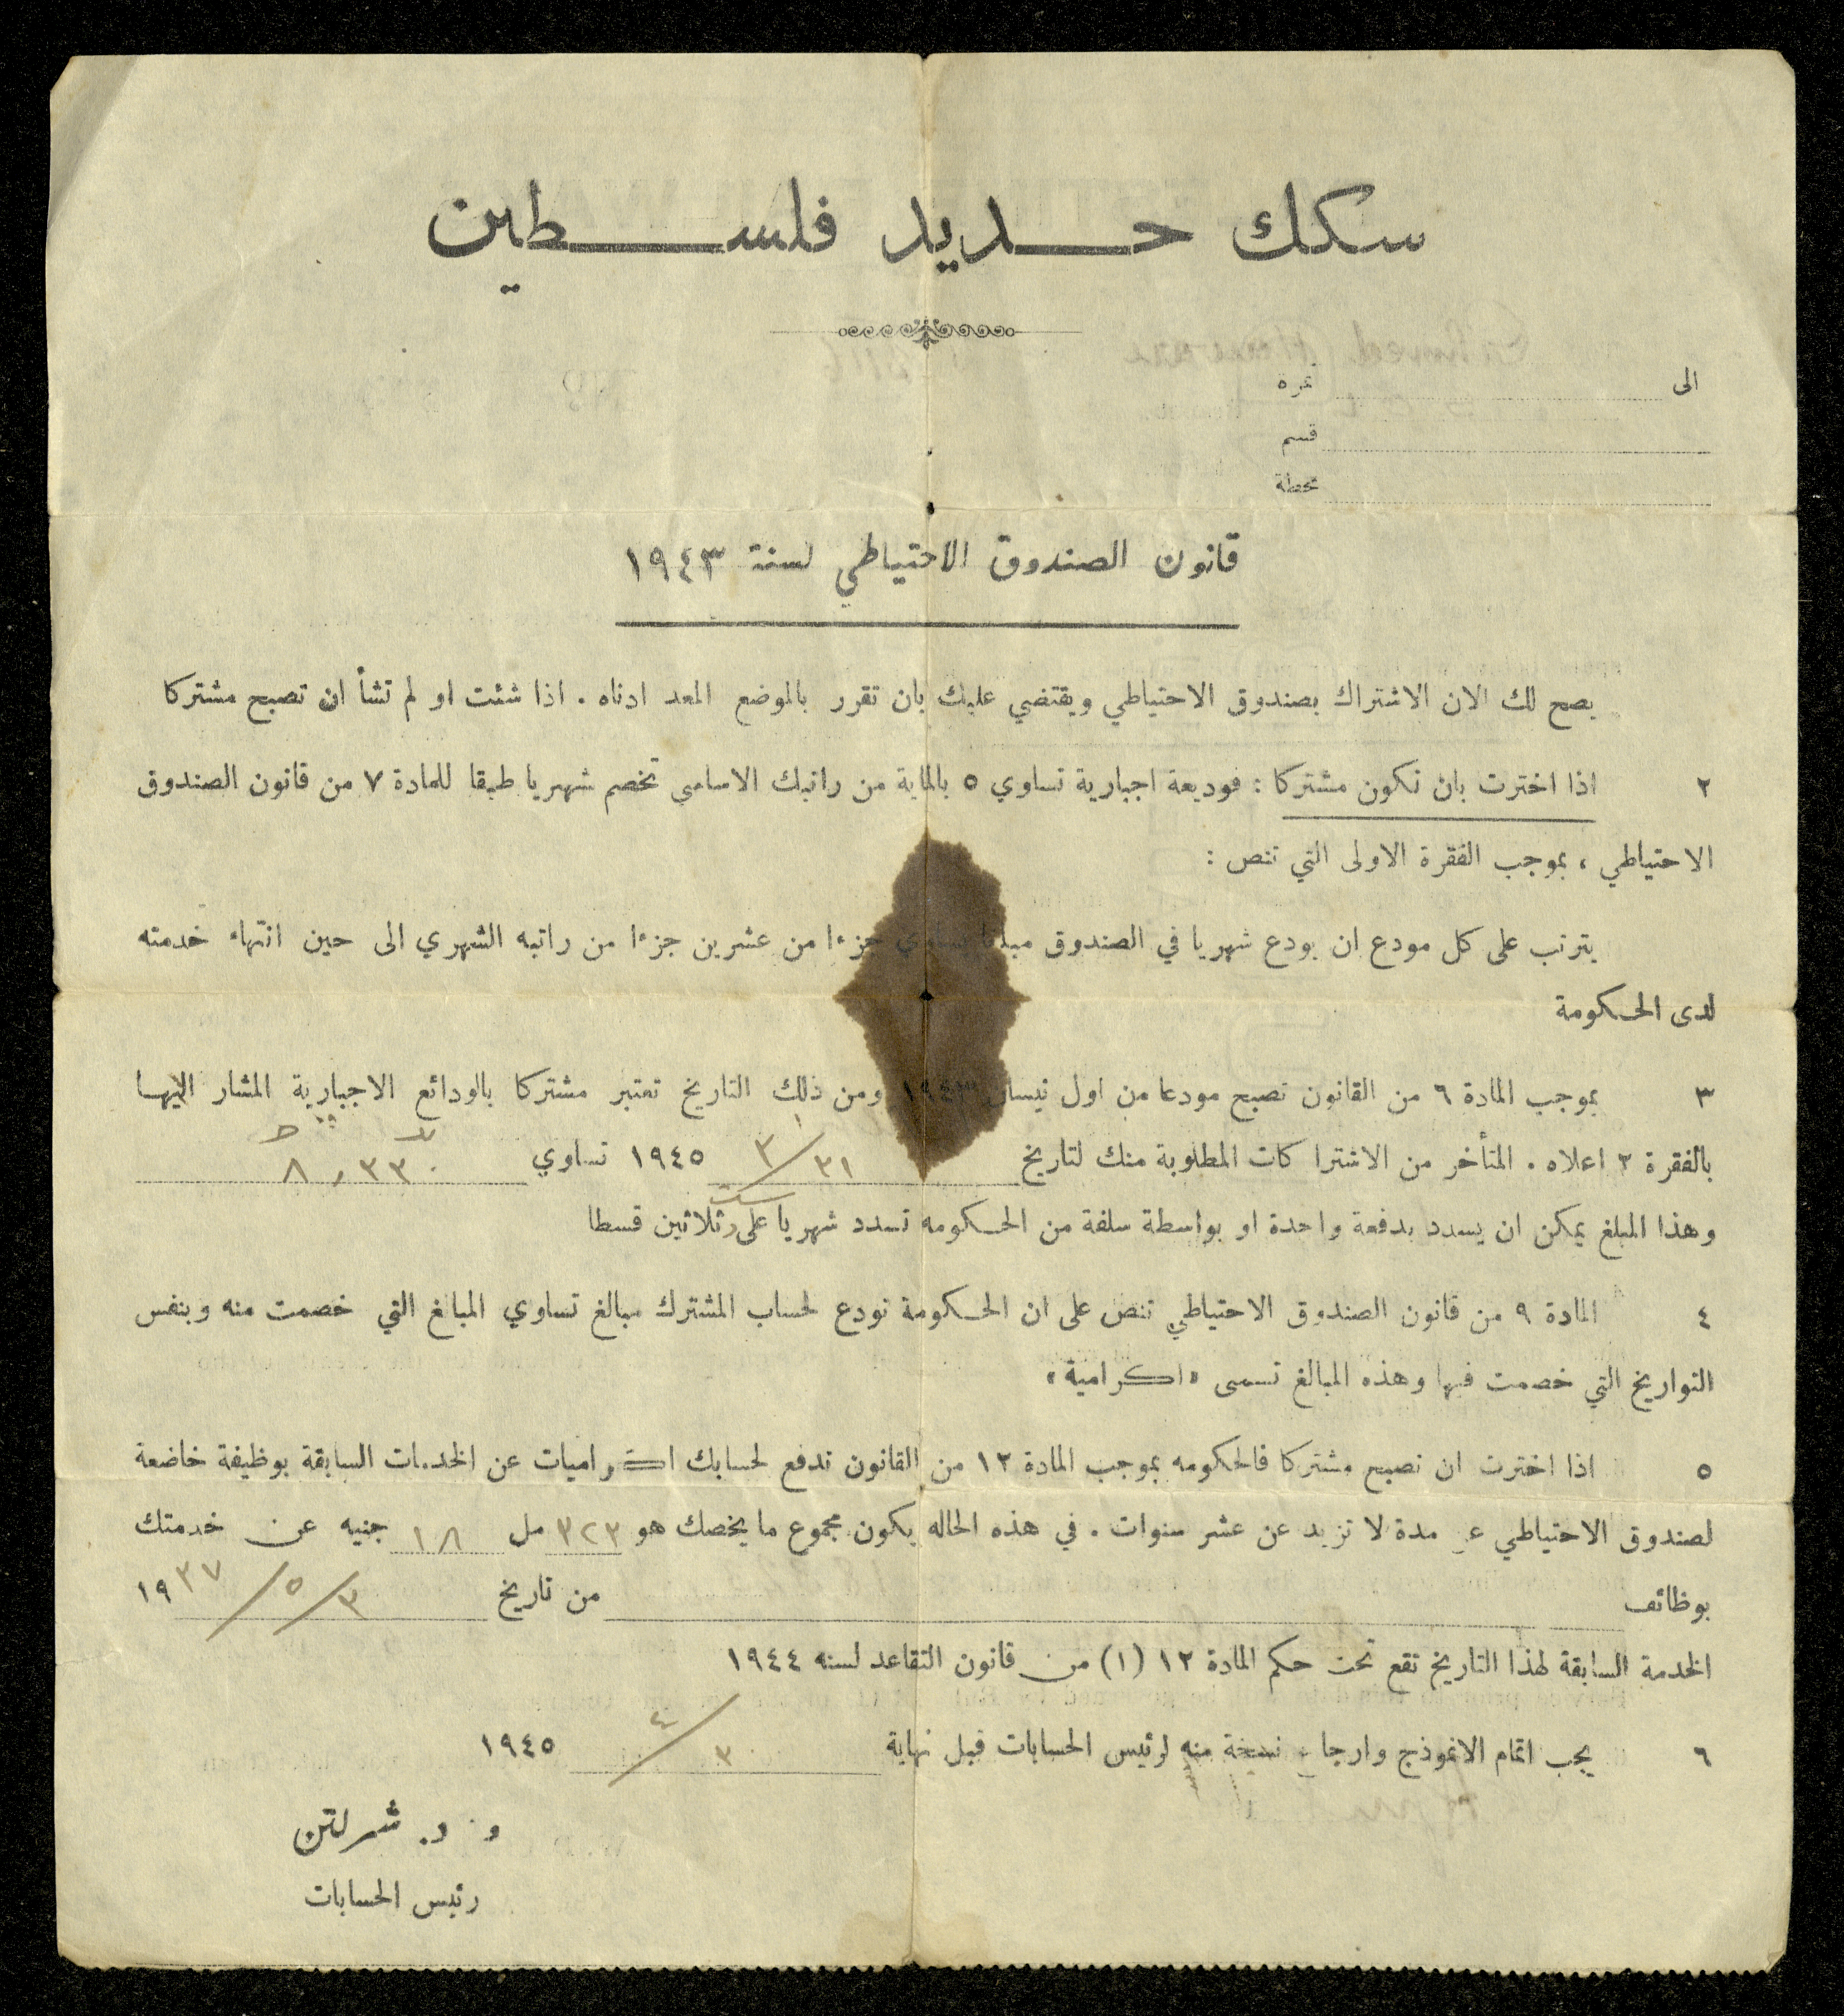 سكك حديد فلسطين
الى نمرة
قسم
محطة
قانون الصندوق الاحتياطي لسنة ١٩٤٣
يصح لك الان الاشتراك بصندوق الاحتياطي ويقتضي عليك بان تقرر بالموضع المعد ادناه . اذا شئت او لم تشأ ان تصبح مشتركا
٢ اذا اخترت بان تكون مشتركا : فوديعة اجبارية تساوي ٥ بالماية من راتبك الاساسي تخصم شهريا طبقا للمادة ٧ من قانون الصندوق
الاحتياطي ، بموجب الفقرة الاولى التي تنص :
يترتب على كل مودع ان يودع شهريا في الصندوق مبلغا يساوي جزءا من عشرين جزءا من راتبه الشهري الى حين انتهاء خدمته
لدى الحكومة
٣ بموجب المادة ٦ من القانون تصبح مودعا من اول نيسان ١٩٤٣ ومن ذلك التاريخ تعتبر مشتركا بالودائع الاجبارية المشار اليها
بالفقرة ٢ اعلاه . المتأخر من الاشتراكات المطلوبة منك لتاريخ ٣١/٣ ١٩٤٥ تساوي ٨,٣٣٠
وهذا المبلغ يمكن ان يسدد بدفعة واحدة او بواسطة سلفة من الحكومه تسدد شهريا على ستة وثلاثين قسطا
٤ المادة ٩ من قانون الصندوق الاحتياطي تنص على ان الحكومة تودع لحساب المشترك مبالغ تساوي المبالغ التي خصمت منه وبنفس
التواريخ التي خصمت فيها وهذه المبالغ تسمى «اكرامية»
٥ اذا اخترت ان تصبح مشتركا فالحكومه بموجب المادة ١٢ من القانون تدفع لحسابك اكراميات عن الخدمات السابقة بوظيفة خاضعة
لصندوق الاحتياطي عن مدة لا تزيد عن عشر سنوات . في هذه الحاله يكون مجموع ما يخصك هو ٣٢٣ مل ١٨ جنيه عن خدمتك
بوظائف من تاريخ ٣/٥/١٩٣٧
الخدمة السابقة لهذا التاريخ تقع تحت حكم المادة ١٢ (١) من قانون التقاعد لسنه ١٩٤٤
٦ يجب اتمام الانموذج وارجاع نسخة منه لرئيس الحسابات قبل نهاية ٣٠/٤ ١٩٤٥
و. د. شرلتن
رئيس الحسابات